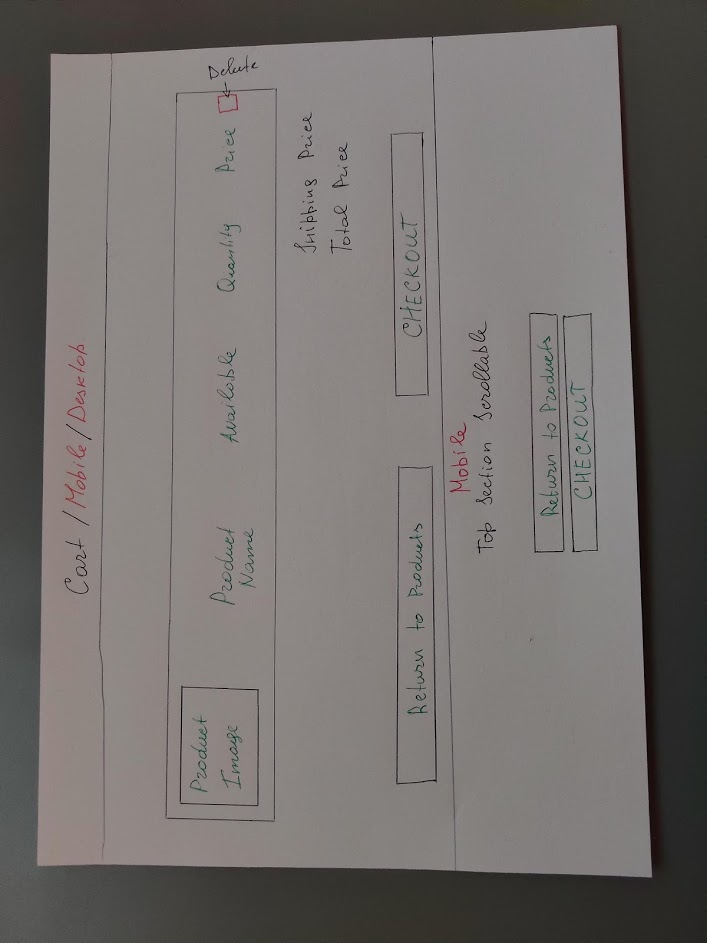 Cart / Mobile / Desktop
Delete
Product
Image
Product
Name
Available
Quantity
Price
Shipping Price
Total Price
Return to Products
CHECKOUT
Mobile
Top Section Scrollable
Return to Products
CHECKOUT